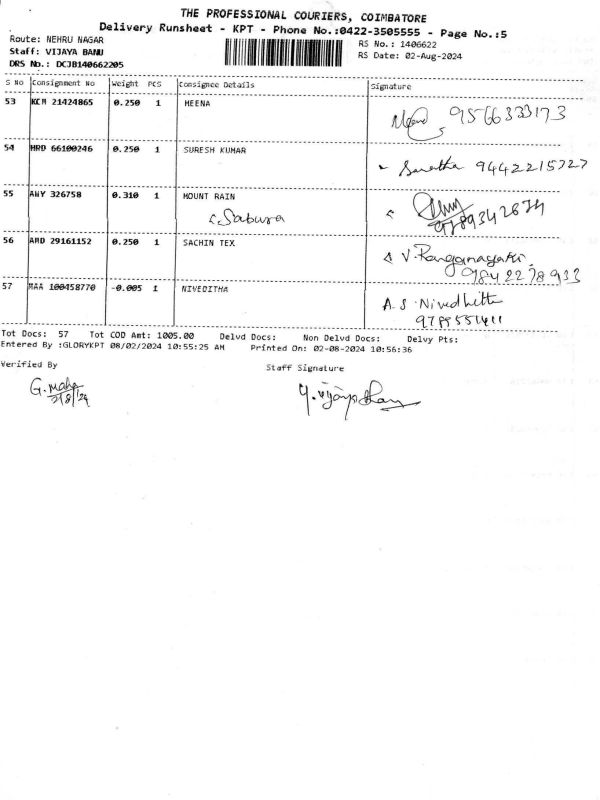 THE PROFESSIONAL COURIERS, COIMBATORE
Delivery Runsheet - KPT - Phone No.:0422-3505555 - Page No.:5
Route: NEHRU NAGAR
RS No.: 1406622
Staff: VIJAYA BANU
RS Date: 02-Aug-2024
DRS No.: DCJB140662205
S No Consignment No Weight PCS Consignee Details Signature
53 KCM 21424865 0.250 1 MEENA
9566333173
54 HRD 66100246 0.250 1 SURESH KUMAR
9442215727
55 AWY 326758 0.310 1 MOUNT RAIN
Sabura
9789342674
56 AMD 29161152 0.250 1 SACHIN TEX
V. Ranganayaki
9842278933
57 MAA 100458770 -0.005 1 NIVEDITHA
A.S. Nivedhitha
9789551411
Tot Docs: 57 Tot COD Amt: 1005.00 Delvd Docs: Non Delvd Docs: Delvy Pts:
Entered By :GLORYKPT 08/02/2024 10:55:25 AM Printed On: 02-08-2024 10:56:36
Verified By Staff Signature
G. Maha
2/8/24